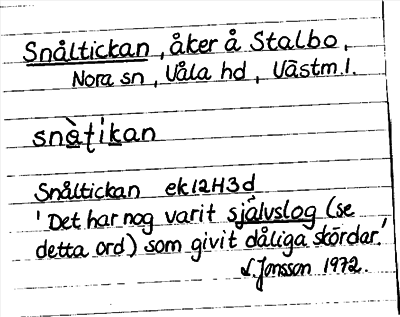 Snåltickan, åker å Stalbo,
Nora sn, Våla hd, Västm.l.
snàṭikan
Snåltickan ek 12H3d
'Det har nog varit självslog (se
detta ord) som givit dåliga skördar.'
L. Jonsson 1972.